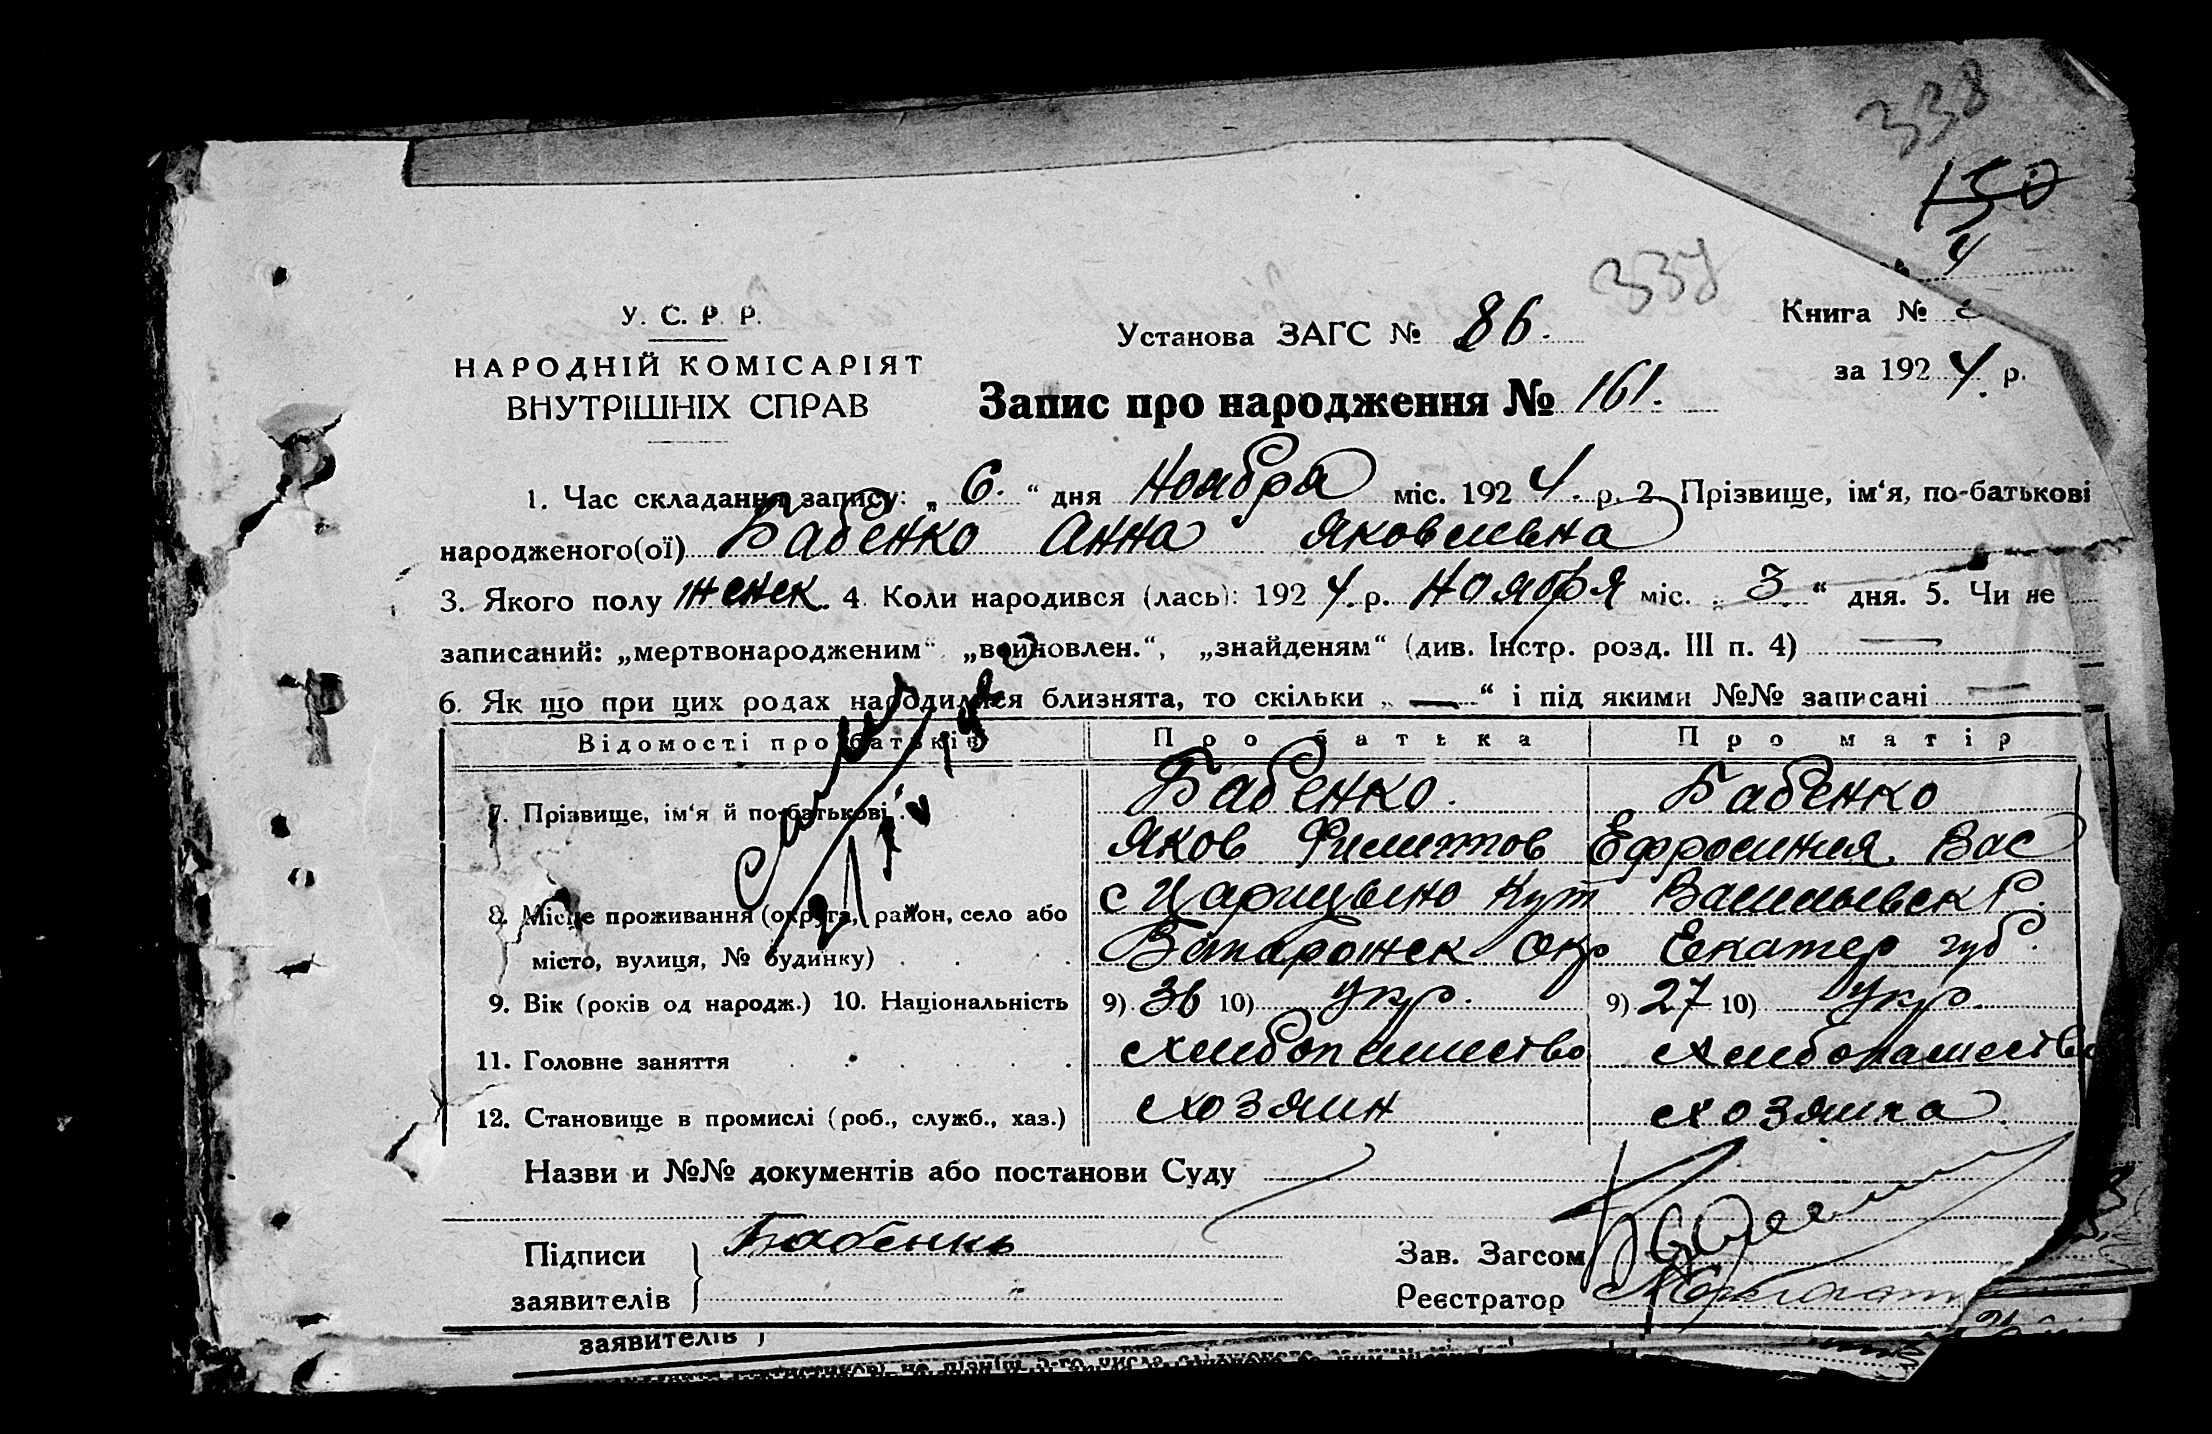 338
150
4
338
У. С. Р. Р.
НАРОДНІЙ КОМІСАРІЯТ
ВНУТРІШНІХ СПРАВ
Установа ЗАГС № 86.
Книга №
за 1924 р.
Запис про народження № 161.
1. Час складання запису: „ 6. “ дня Ноября міс. 1924. р. 2. Прізвище, ім‘я, по-батькові
народженого(ої) Бабенко Анна Яковлевна
3. Якого полу женск. 4. Коли народився (лась): 1924. р. Ноября міс. „ 3 “ дня. 5. Чи не
записаний: „мертвонародженим“ „всиновлен.“, „знайденям“ (див. Інстр. розд. III п. 4) —
6. Як що при цих родах народилися близнята, то скільки „ — “ і під якими №№ записані —
Відомості про батьків Про батька Про матір
7. Прізвище, ім‘я й по-батькові Бабенко. Бабенко
Яков Филиппов Ефросиния Вас
8. Місце проживання (округа, район, село або с Царицыно Кут Васильевск Р.
місто, вулиця, № будинку) Запарожск окр Екатер губ.
9. Вік (років од народж.) 10. Національність 9) 36 10) Укр. 9) 27 10) Укр.
11. Головне заняття хлебопашество хлебопашество
12. Становище в промислі (роб., служб., хаз.) хозяин хозяика
Назви и №№ документів або постанови Суду
Підписи Бабенко Зав. Загсом
заявителів Реєстратор
заявителів